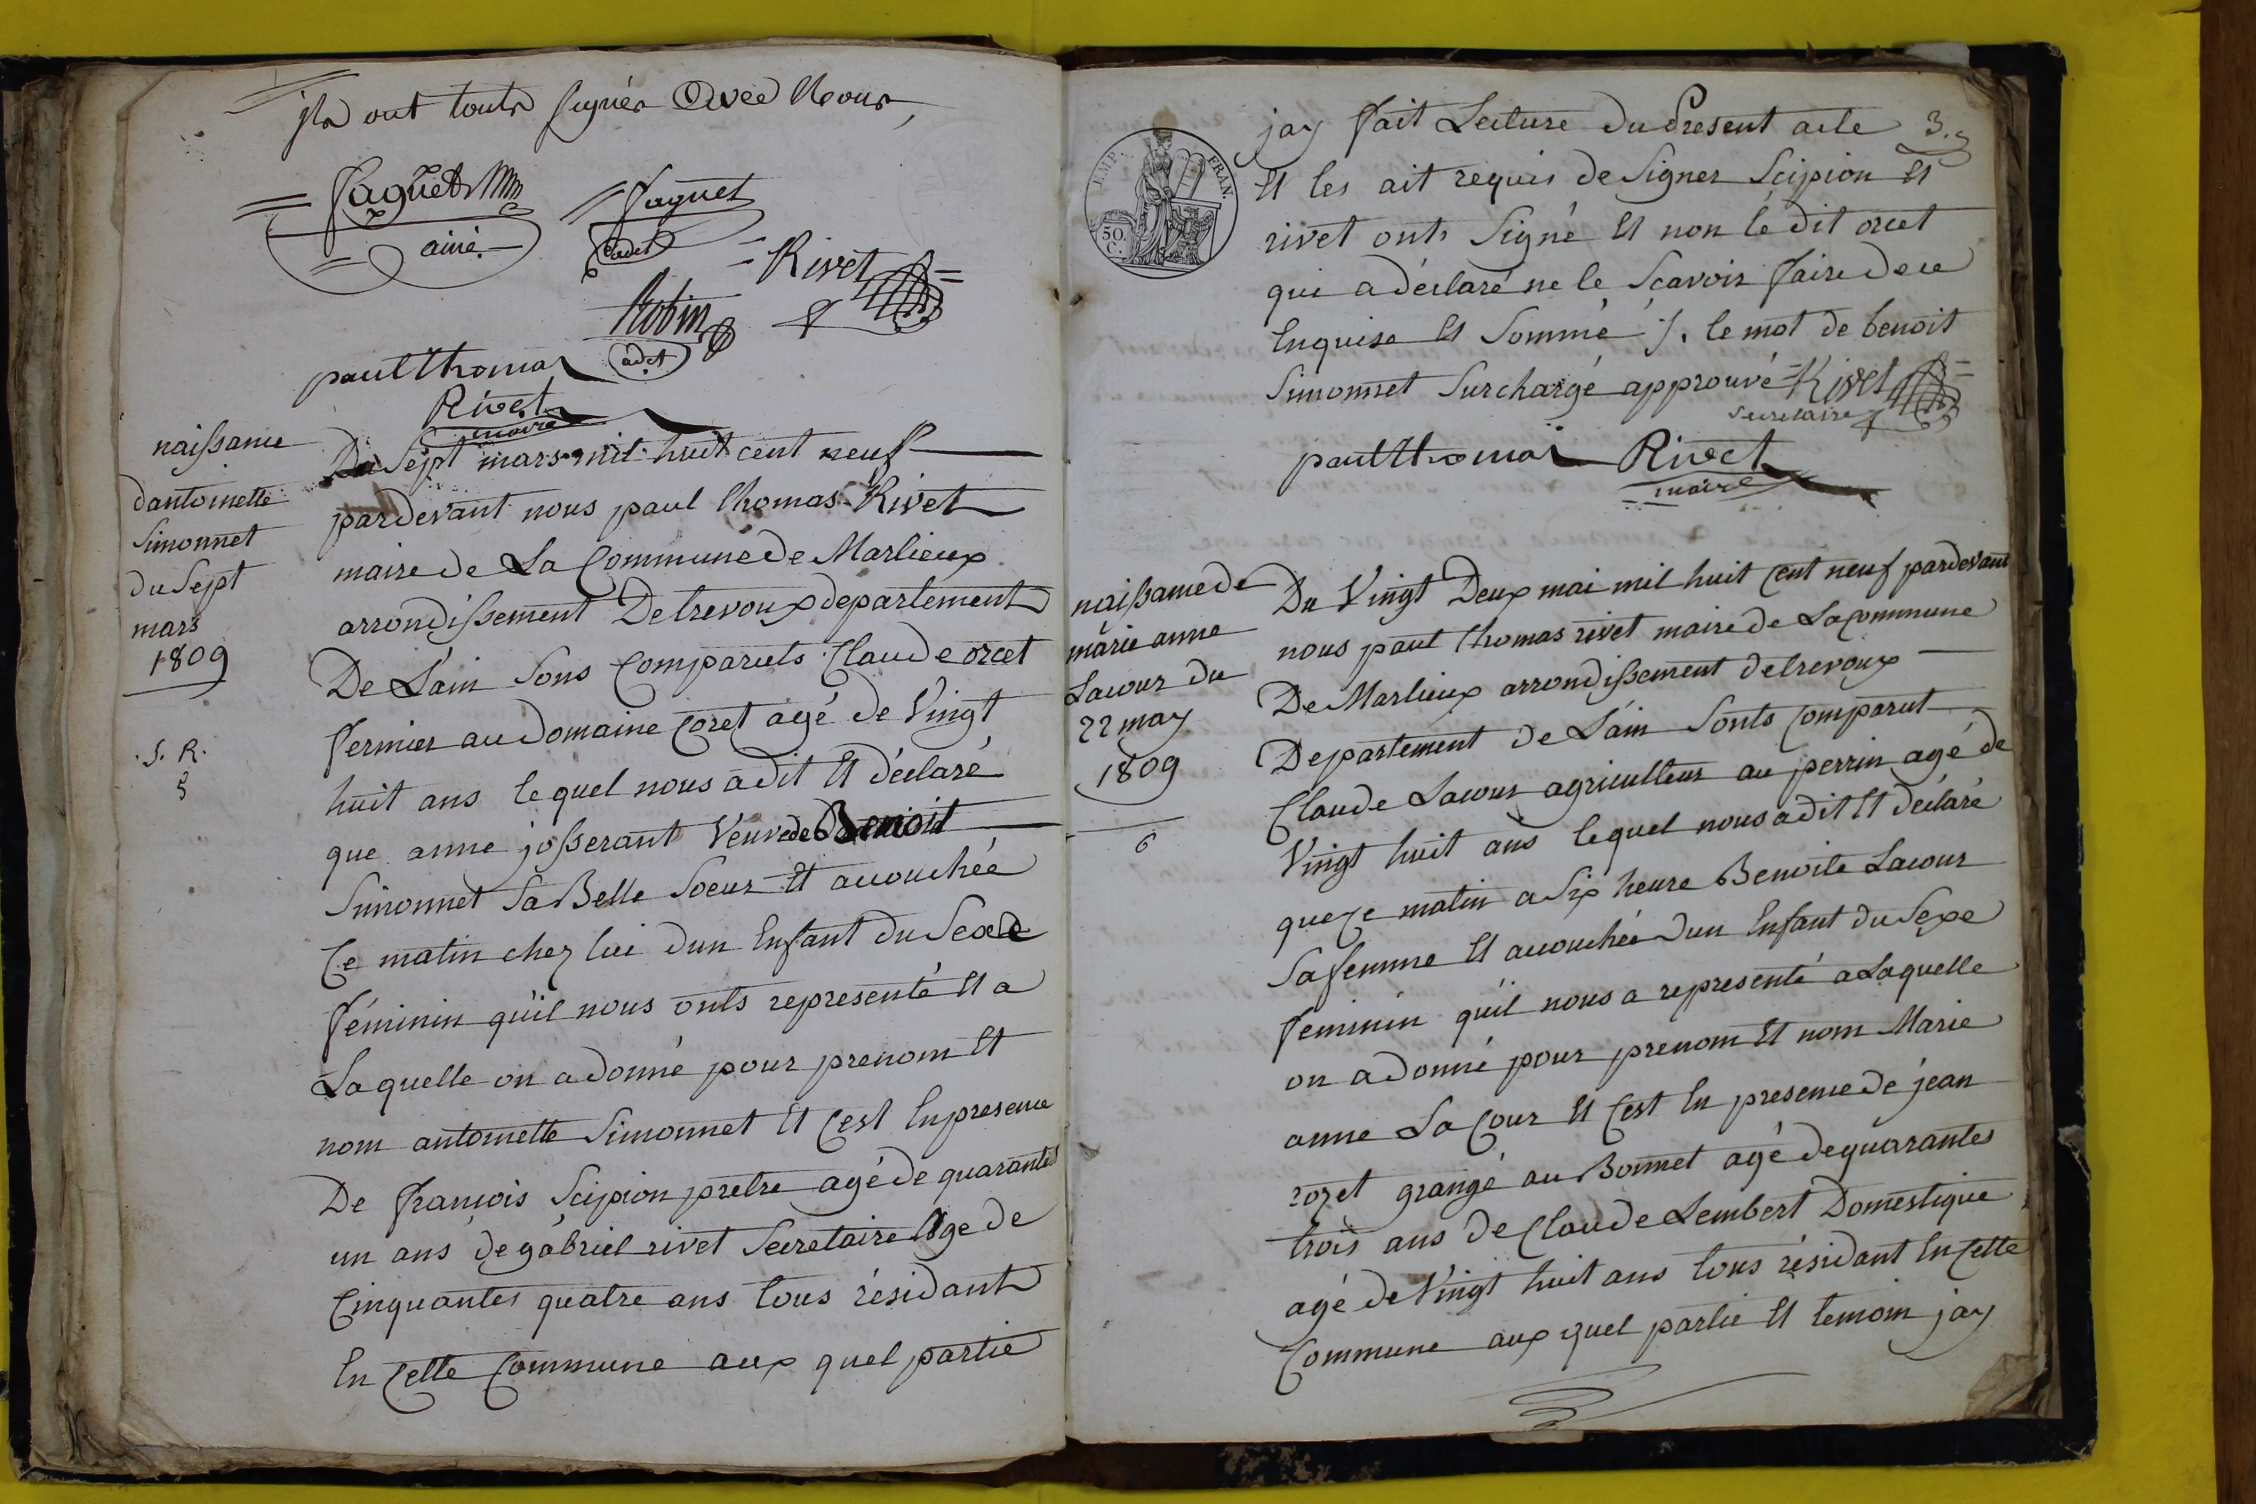 ils ont touts signés Avec Nous,
Jaguet
ainé
Jaguet
cadet
Rivet
Robin
adjt
paul thomas
Rivet
maire
naissance
dantoinette
Simonnet
du Sept
mars
1809
. S. R.
5
Du Sept mars mil huit cent neuf
pardevant nous paul thomas Rivet
maire de La Commune de Marlieux
arrondissement De trevoux departement
De L'ain Sons Comparuts Claude orcet
fermier au domaine Coret agé de Vingt
huit ans lequel nous a dit Et déclaré
que anne josserant Veuve de Benoit
Simonnet Sa Belle Soeur Et accouchée
Ce matin chez lui dun Enfant du Sexe
féminin qu'il nous onts representé Et a
Laquelle on a donné pour prenom Et
nom antoinette Simonnet Et C'est En presence
De françois Scipion pretre agé de quarantes
un ans de gabriel rivet Secretaire Age de
Cinquantes quatre ans tous résidant
En Cette Commune aux quel partie
EMP. FRAN.
50 C.
3.
jay fait Lecture Du Present acte
Et les ait requis de Signer Scipion Et
rivet onts Signé Et non le dit orcet
qui a déclaré ne le Sçavoir faire de ce
Enquise Et Sommé /. le mot de benoit
Simonnet Surchargé approuvé Rivet
Secretaire
paul thomas Rivet
maire
naissance de
marie anne
Lacour du
22 may
1809
6
Du Vingt Deux mai mil huit Cent neuf pardevant
nous paul thomas rivet maire de La Commune
De Marlieux arrondissement de trevoux
Departement de L'ain Sonts Comparut
Claude Lacour agriculteur au perrin agé de
Vingt huit ans lequel nous a dit Et déclaré
que Ce matin a Six heure Benoite Lacour
Sa femme Et accouchée Dun Enfant du Sexe
feminin qu'il nous a representé a Laquelle
on a donné pour prenom Et nom Marie
anne La Cour Et C'est En presence de jean
rozet grangé au Bonnet agé de quarantes
trois ans de Claude Lembert Domestique
agé de Vingt huit ans tous résidant En Cette
Commune aux quel partie Et temoin jay